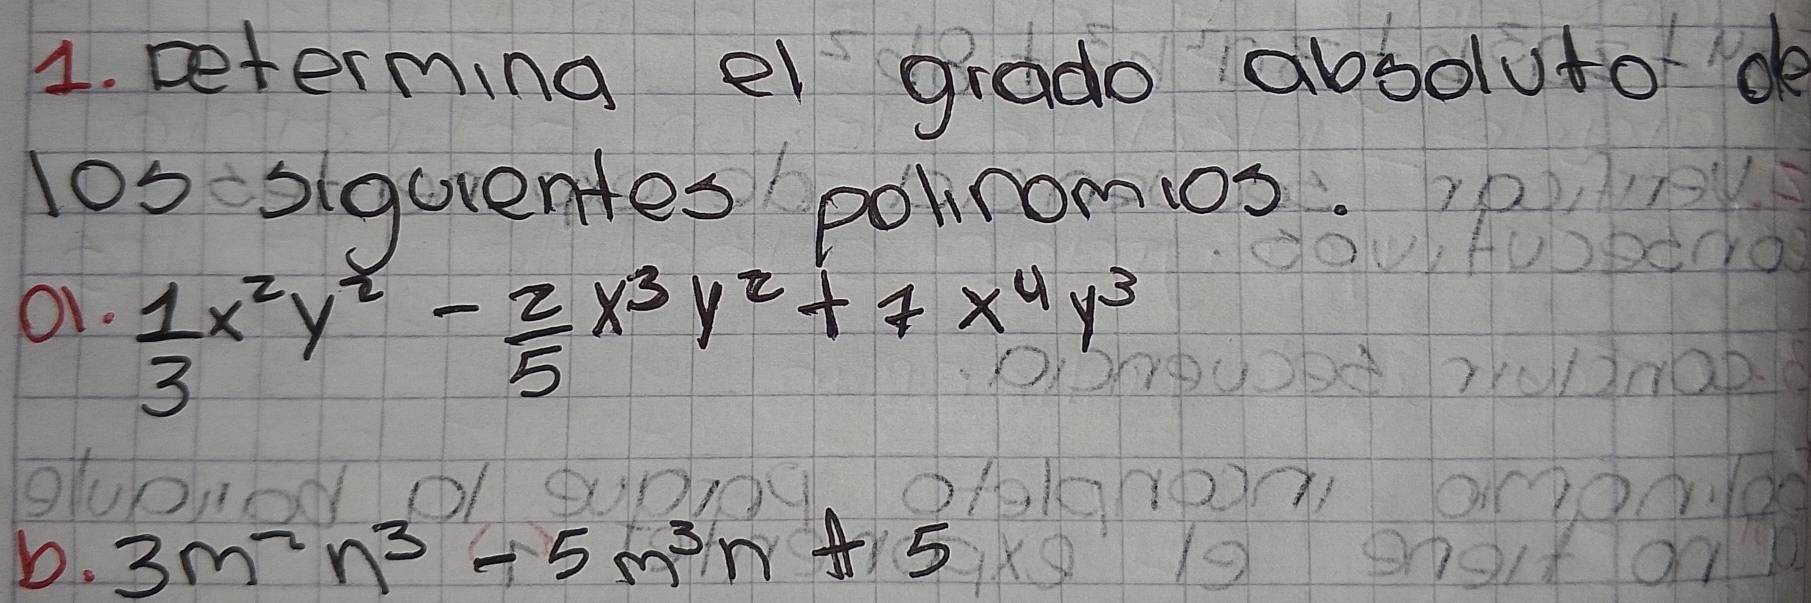 1. Determina el grado absoluto de
los siguientes polinomios.
a. 1/3 x²y² - 2/5 x³y² + 7 x⁴y³
b. 3m²n³ - 5m³n + 5